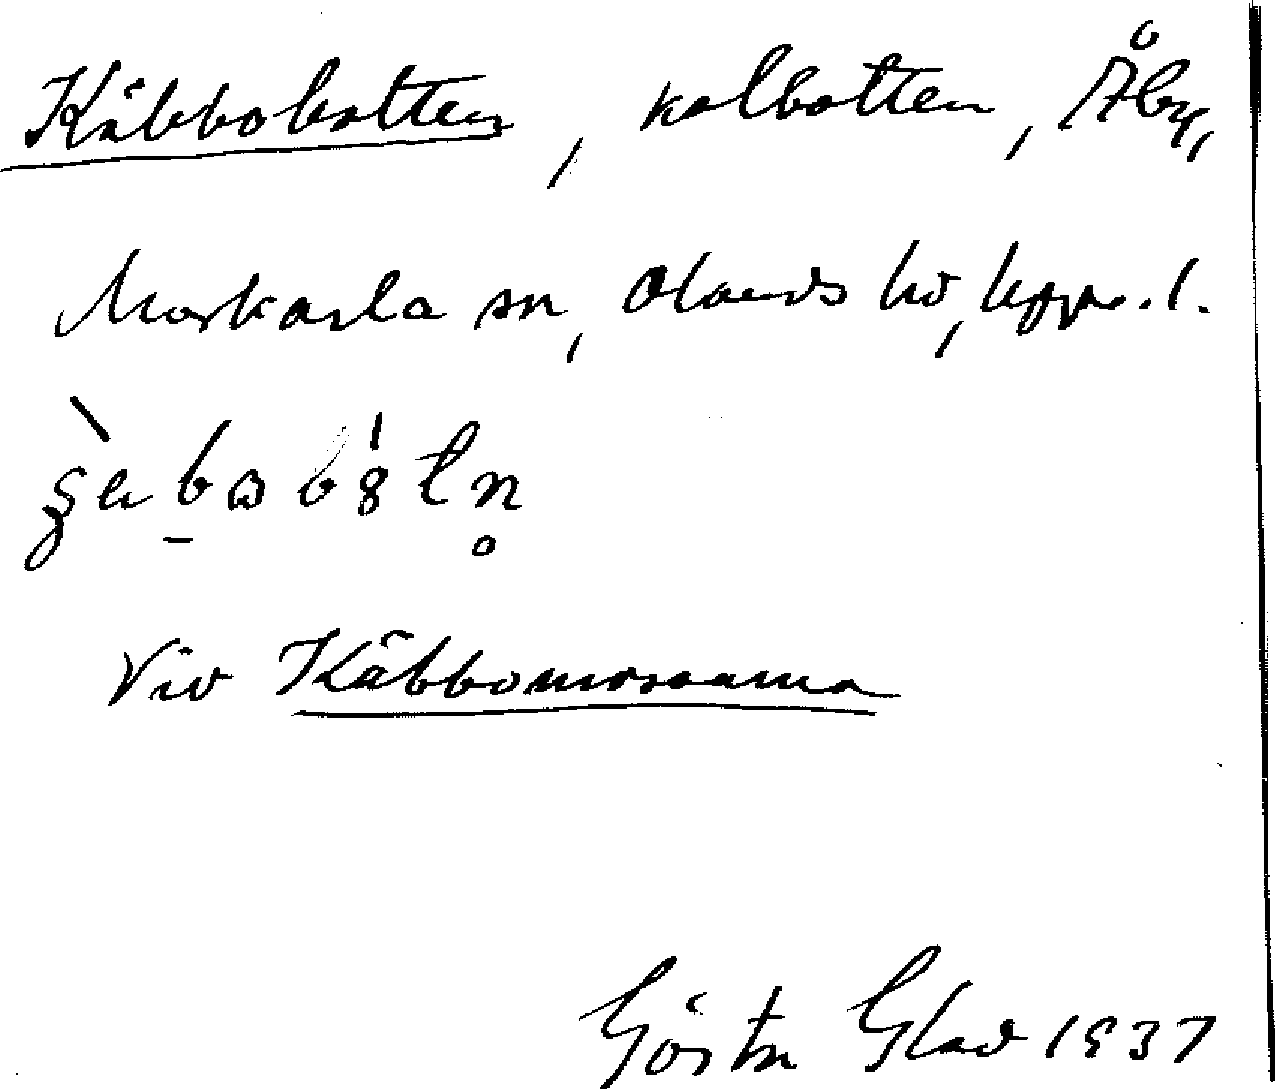 Käbbobotten, kolbotten, Åby,
Morkarla sn, Olands hd, Upps. l.
Vid Käbbomossarna
Gösta Glad 1937